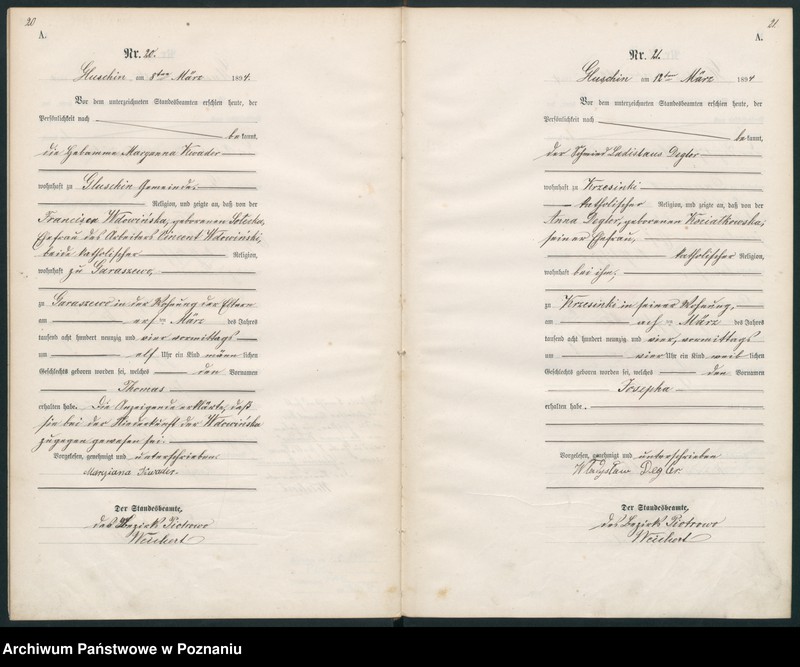 20
A.
Nr. 20.
Gluschin am 8ten März 1894.
Vor dem unterzeichneten Standesbeamten erschien heute, der
Persönlichkeit nach
be kannt,
die Hebamme Maryanna Kwader
wohnhaft zu Gluschin Gemeinde,
Religion, und zeigte an, daß von der
Francisca Wdowińska, geborenen
Ehefrau des Arbeiters Vincent Wdowiński,
beide katholischer Religion,
wohnhaft zu Garaszewo,
zu Garaszewo in der Wohnung der Eltern
am März des Jahres
tausend acht hundert neunzig und vier vormittags
um elf Uhr ein Kind männ lichen
Geschlechts geboren worden sei, welches den Vornamen
Thomas
erhalten habe. Die Anzeigende erklärte, daß
sie bei der Niederkunft der Wdowińska
zugegen gewesen sei.
Vorgelesen, genehmigt und unterschrieben.
Maryiana Kwader.
Der Standesbeamte,
des Bezirk Piotrowo
Weichert
21
A.
Nr. 21.
Gluschin am 12ten März 1894
Vor dem unterzeichneten Standesbeamten erschien heute, der
Persönlichkeit nach
be kannt,
der Schmied Ladislaus Degler
wohnhaft zu Krzesinki
katholischer Religion, und zeigte an, daß von der
Anna Degler, geborenen Kwiatkowska,
seiner Ehefrau,
katholischer Religion,
wohnhaft bei ihm,
zu Krzesinki in seiner Wohnung,
am März des Jahres
tausend acht hundert neunzig und vier, vormittags
um vier Uhr ein Kind weib lichen
Geschlechts geboren worden sei, welches den Vornamen
Josepha
erhalten habe.
Vorgelesen, genehmigt und unterschrieben
Władysław Degler.
Der Standesbeamte,
des Bezirk Piotrowo
Weichert
Archiwum Państwowe w Poznaniu